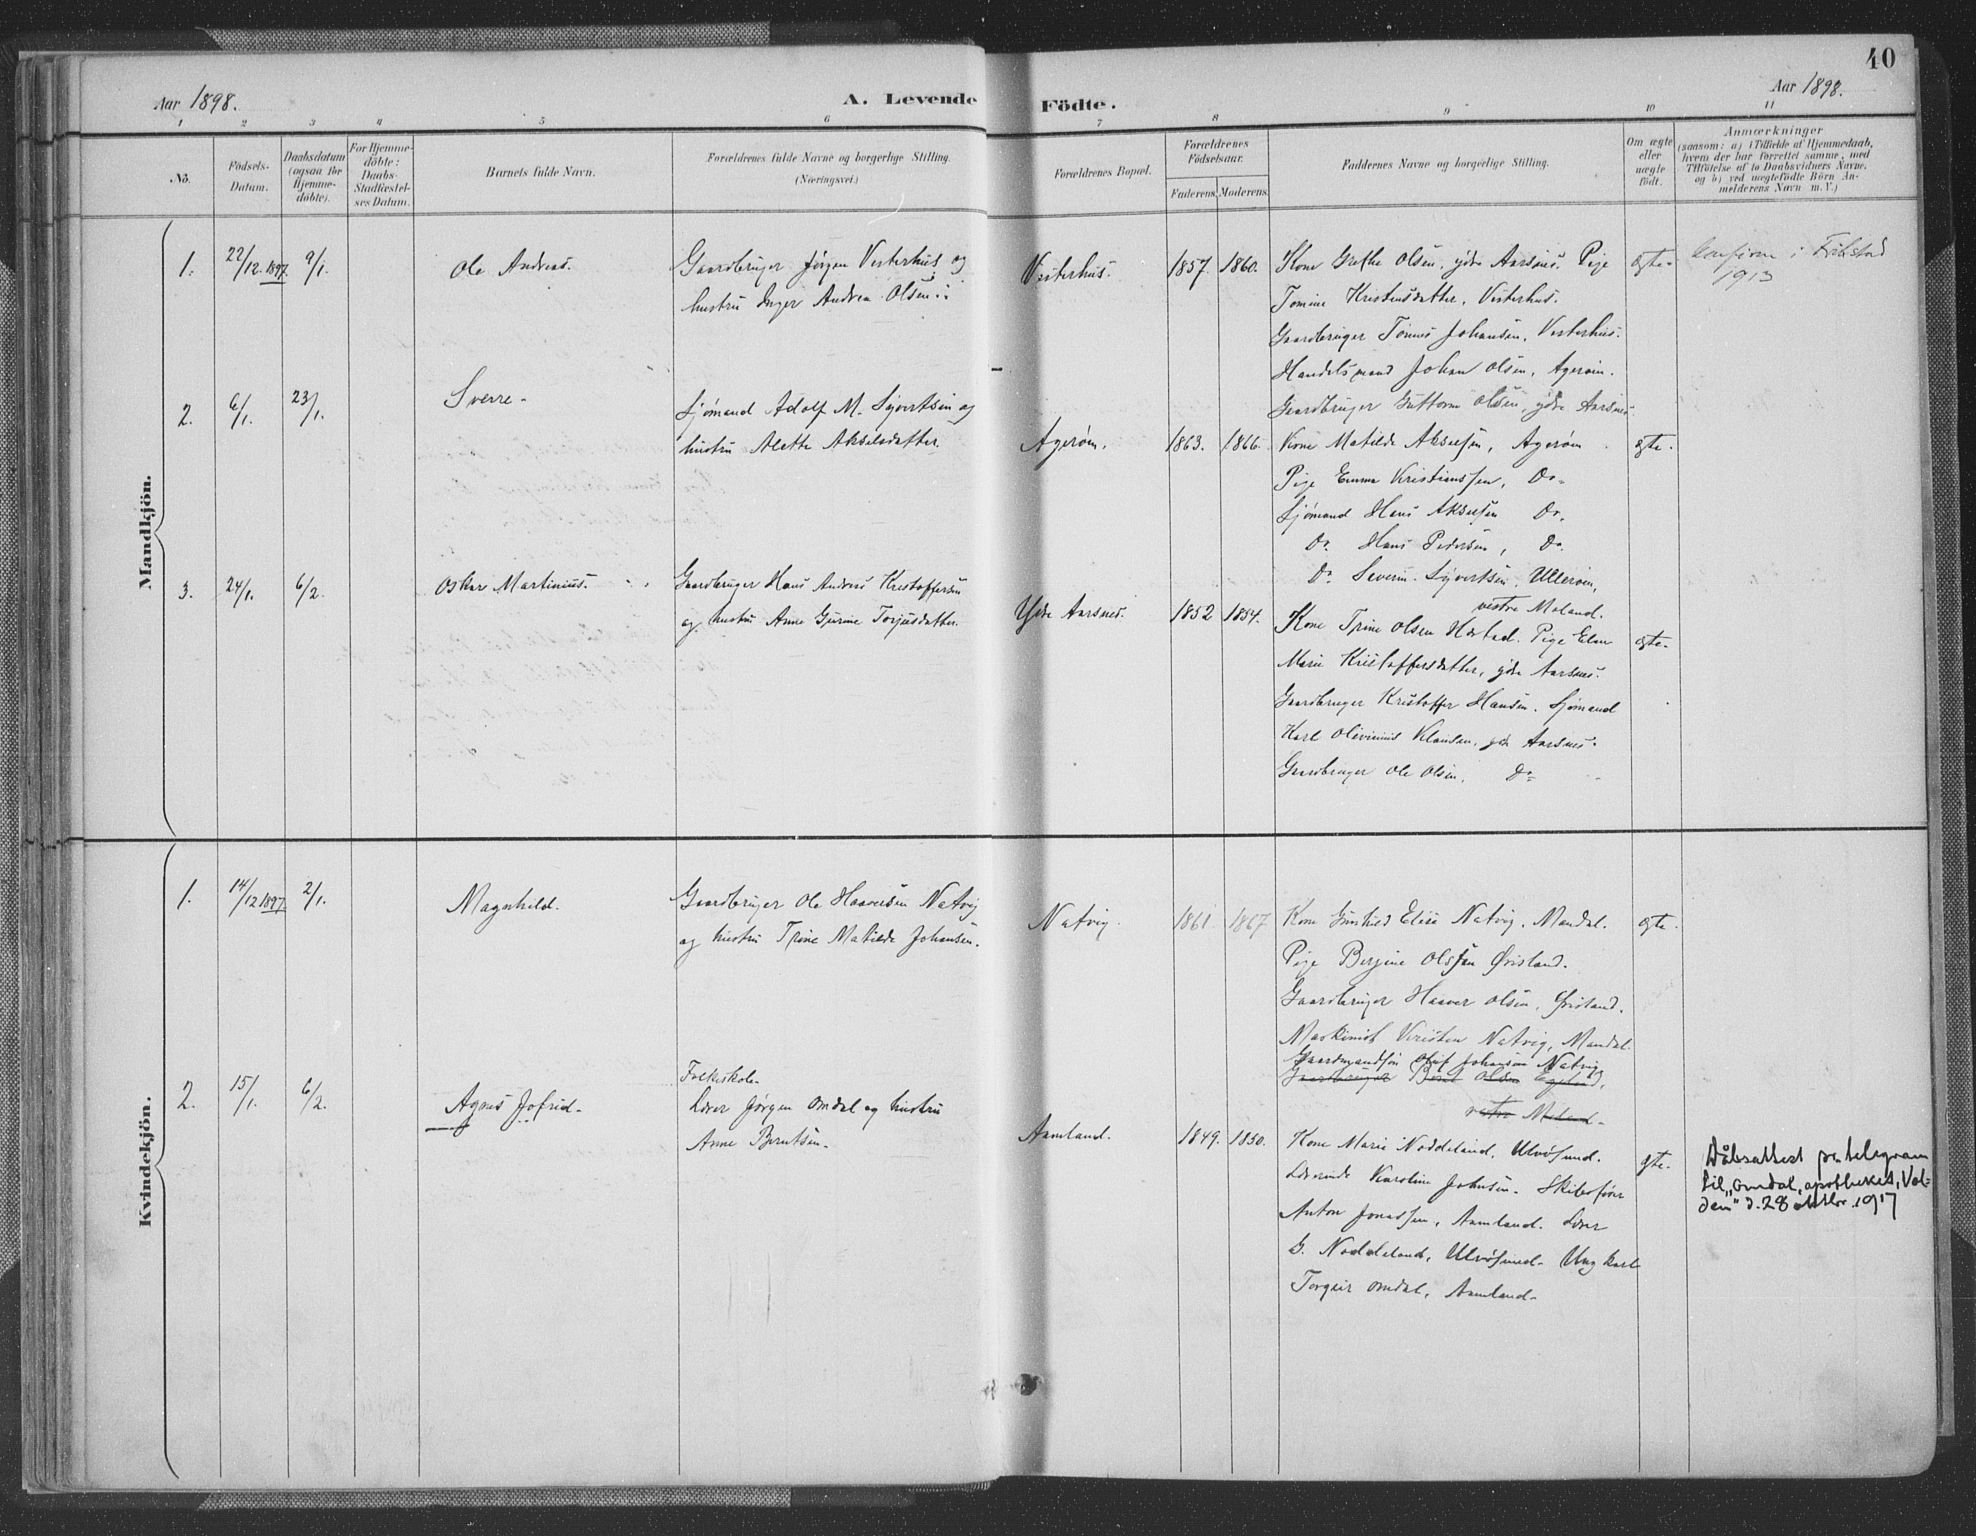 40
Aar 1898.
A. Levende Födte.
Aar 1898.
1 2 3 4 5 6 7 8 9 10 11
No.
Födsels-
Datum.
Daabsdatum
(ogsaa for
Hjemme-
döbte).
For Hjemme-
döbte:
Daabs-
Stadfæstel-
ses Datum.
Barnets fulde Navn.
Forældrenes fulde Navne og borgerlige Stilling.
(Næringsvei.)
Forældrenes Bopæl.
Forældrenes
Födselsaar.
Faderens. Moderens.
Faddernes Navne og borgerlige Stilling.
Om ægte
eller
uægte
födt.
Anmærkninger
(saasom: a) i Tilfælde af Hjemmedaab,
hvem der har forrettet samme, med
Tilföielse af to Daabsvidners Navne,
og b) ved uægtefödte Börn An-
melderens Navn m. V.)
Mandkjön.
1. 22/12. 1897. 9/1.
Ole Andreas.
Gaardbruger Jørgen Vesterhus og
hustru Inger Andrea Olsen.
Vesterhus.
1857. 1860.
Kone Grethe Olsen, ydre Aarsnes. Pige
Tomine Kristensdatter, Vesterhus.
Gaardbruger Tønnes Johansen, Vesterhus.
Handelsmand Johan Olsen, Agerøen.
Gaardbruger Guttorm Olsen, ydre Aarsnes
ægte.
konfirm i Fjelstad
1913
2. 6/1. 23/1.
Sverre.
Sjømand Adolf M. Syvertsen og
hustru Alette Akselsdatter.
Agerøen.
1863. 1866.
Kone Matilde Akselsen, Agerøen
Pige Emma Kristianssen, Do.
Sjømand Hans Akselsen Do.
Do. Hans Pedersen, Do.
Do. Severin Syvertsen, Ullerøen,
vestre Moland.
ægte.
3. 24/1. 6/2.
Oskar Martinius.
Gaardbruger Hans Andreas Kristoffersen
og hustru Anne Gurine Torjusdatter.
Ydre Aarsnes.
1852 1854.
Kone Trine Olsen Hæstad. Pige Elen
Marie Kristoffersdatter, ydre Aarsnes.
Gaardbruger Kristoffer Hansen. Sjømand
Karl Olivinius Klausen, ydre Aarsnes.
Gaardbruger Ole Olsen, Do
ægte.
Kvindekjön.
1. 14/12 1897. 2/1.
Magnhild.
Gaardbruger Ole Haaversen Natvig
og hustru Trine Matilde Johansen.
Natvig.
1861. 1867
Kone Gunhild Elise Natvig, Mandal.
Pige Bergine Olssen Øvisland.
Gaardbruger Haaver Olsen, Øvisland.
Maskinist Kristen Natvig, Mandal.
Gaardmandssøn Oluf Johansen Natvig
Gaardbruger Bent Olsen
vestre Moland.
ægte.
2. 15/1. 6/2.
Agnes Jofrid.
Folkeskole-
lærer Jørgen Omdal og hustru
Anne Berntsen.
Aamland.
1849. 1850.
Kone Marie Noddeland, Ulvøsund.
Lærerinde Karoline Johnsen. Skibsfører
Anton Jonassen, Aamland. Lærer
G. Noddeland, Ulvøsund. Ungkarl
Torgeir Omdal, Aamland.
ægte.
Dåbsattest pr. telegram
til "Omdal, apotheket, Vol-
den" d. 28 oktbr. 1917